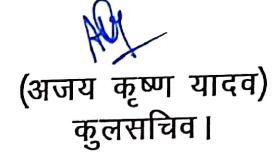 (अजय कृष्ण यादव)
कुलसचिव।